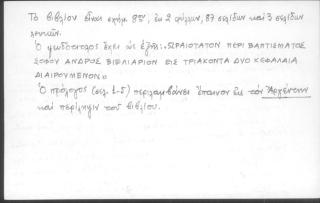 Το βιβλίον είναι σχήμ. 8ον, ἐκ 2 φύλλων, 87 σελίδων καί 3 σελίδων
λευκῶν.
Ὁ ψευδότιτλος ἔχει ὡς ἑξῆς: «ΩΡΑΙΟΤΑΤΟΝ ΠΕΡΙ ΒΑΠΤΙΣΜΑΤΟΣ
ΣΟΦΟΥ ΑΝΔΡΟΣ ΒΙΒΛΙΑΡΙΟΝ ΕΙΣ ΤΡΙΑΚΟΝΤΑ ΔΥΟ ΚΕΦΑΛΑΙΑ
ΔΙΑΙΡΟΥΜΕΝΟΝ.»
Ὁ πρόλογος (σελ. 1-5) περιλαμβάνει ἔπαινον εἰς τόν Ἀργέντην
καί περίληψιν τοῦ βιβλίου.